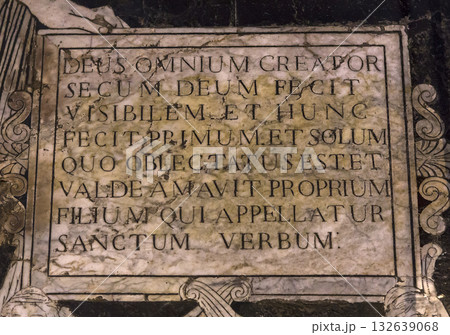 DEUS OMNIUM CREATOR
SECUM DEUM FECIT
VISIBILEM ET HUNC
FECIT PRIMUM ET SOLUM
QUO OBLECTATUS EST ET
VALDE AMAVIT PROPRIUM
FILIUM QUI APPELLATUR
SANCTUM VERBUM:
132639068